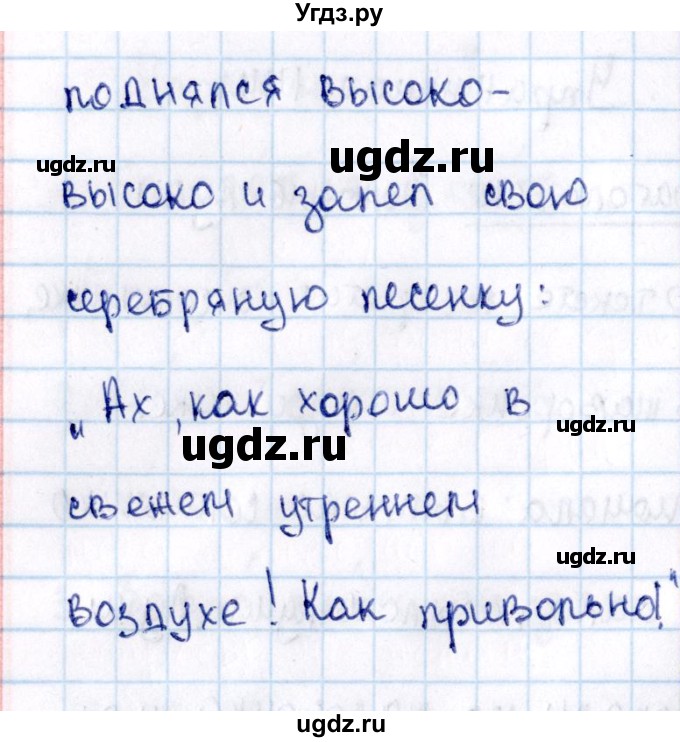 Угдз.ру
поднялся высоко-
ugdz.ru
ugdz.ru
высоко и запел свою
серебряную песенку:
„Ах, как хорошо в
ugdz.ru
свежем утреннем
ugdz.ru
воздухе! Как привольно!"
ugdz.ru